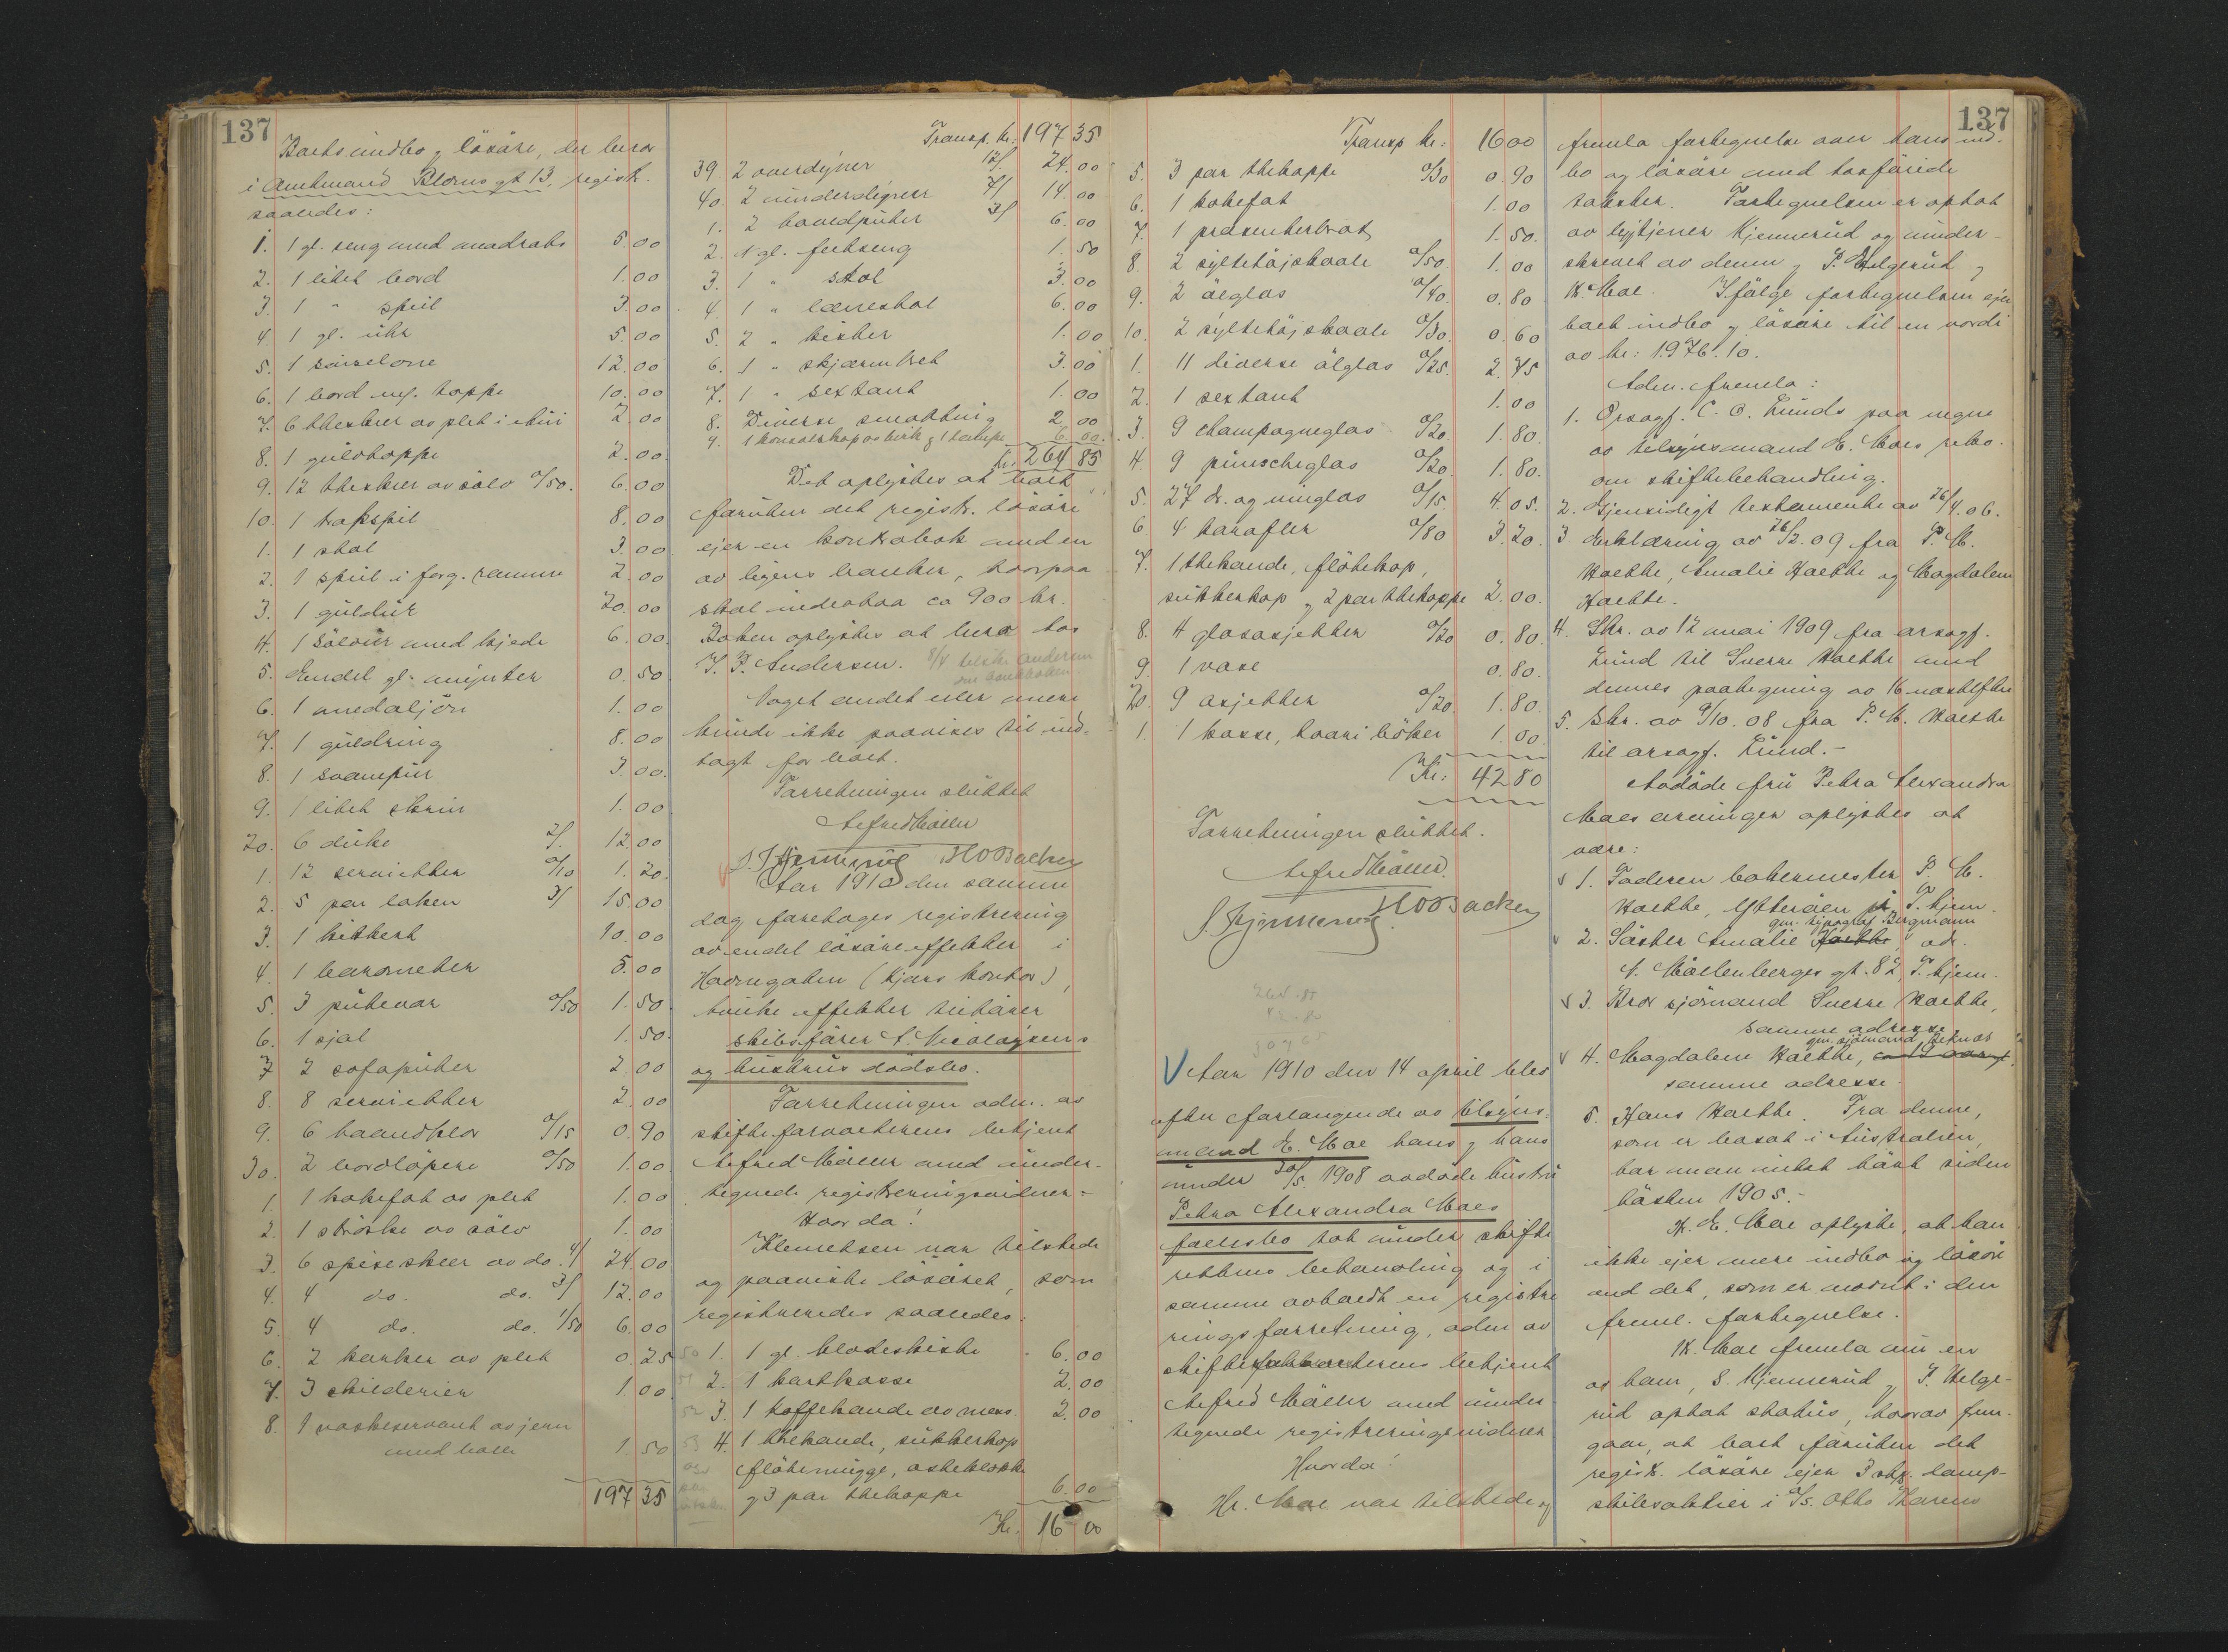 137
Boets indbo og løsøre, der beror
i Amtmand Bloms gt 13, registr.
saaledes:
1. 1 gl. seng med madrats 5.00
2. 1 litet bord 1.00
3. 1 " speil 3.00
4 1 gl. uhr 5.00
5. 1 1 12.00
6. 1 bord m. teppe 10.00
7. 6 theskeer av plet i etui 2.00
8. 1 guldkoppe 2.00
9. 12 theskeer av sølv a/50. 6.00
10. 1 takspil 8.00
1. 1 stol 3.00
2. 1 speil i forg. ramme 2.00
3. 1 guldur 20.00
4. 1 sølvur med kjede 6.00
5. Endel gl. mynter 0.50
6. 1 medaljon 1.00
7. 1 guldring 8.00
8. 1 svampur 3.00
9. 1 litet skrin 1.00
20. 6 duke 2/ 12.00
1. 12 servietter a/10 1.20
2. 5 par laken 3/ 15.00
3. 1 kikkert 10.00
4. 1 barometer 5.00
5. 3 putevar a/50 1.50
6. 1 sjal 1.50
7 2 sofaputer 2.00
8. 8 servietter 2.00
9. 6 haandklær a/15 0.90
30. 2 bordløpere a/50 1.00
1. 1 kakefat av plet 1.00
2. 1 strøske av sølv 1.00
3. 6 spiseskeer av do. 4/ 24.00
4. 4 do. do. 3/ 12.00
5. 4 do. do. 1/50 6.00
6. 2 korker av plet 0.25
7. 3 skilderier 1.00
8. 1 vaskeservant av jern
med bolle 1.50
197 35
Transp. kr. 197 35
39. 2 overdyner 12/ 24.00
40. 2 underdyner 7/ 14.00
1. 2 hovedputer 3/ 6.00
2. 1 gl. feltseng 1.50
3. 1 " stol 3.00
4. 1 " lænestol 6.00
5. 2 " kister 1.00
6. 1 " skjærmbret 3.00
7. 1 " sextant 1.00
8. Diverse smaating 2.00
9. 1 konsolskap av birk og 1 lampe 6.00
kr. 264 85
Det oplystes at boet
foruten det registr. løsøre
ejer en kontrabok med en
av byens banker, hvorpaa
skal indestaa ca 900 kr.
Boken oplystes at bero hos
J. P. Andersen. 8/4 tilskr. Andersen
om bankboken.
Noget andet eller mere
kunde ikke paavises til ind-
tægt for boet.
Forretningen sluttet
Alfred Møller
S. Hjemmerud H O Backer
Aar 1910 den samme
dag foretoges registrering
av endel løsøreeffekter i
Havnegaten (Kjærs kontor),
hvilke effekter tilhører
skibsfører A. Nicolaysens
og hustrus dødsbo.
Forretningen adm. av
skifteforvalterens betjent
Alfred Møller med under-
tegnede registreringsvidner. -
Hvor da!
Klemetsen var tilstede
og paaviste løsøret, som
registreredes saaledes:
50 1. 1 gl. bladeskiste 6.00
51 2. 1 kartkasse 2.00
52 3. 1 kaffekande av mess. 2.00
53 4. 1 thekande, sukkerkop
fløtemugge, osteklokke
og 3 par thekopper 6.00
Kr. 16 00
137
Transp kr: 16 00
5. 3 par thekopper a/30 0.90
6. 1 kakefat 1.00
7. 1 presenterbrat 1.50.
8. 2 syltetøjskaale a/50. 1.00
9. 2 ølglas a/40. 0.80
10. 2 syltetøjskaale a/30. 0.60
1. 11 diverse ølglas a/25. 2.75
2. 1 sextant 1.00
3. 9 champagneglas a/20. 1.80.
4. 9 punscheglas a/20. 1.80.
5. 27 dr. og vinglas a/15. 4.05.
6 4 karafler a/80 3.20.
7. 1 thekande, fløtekop,
sukkerkop og 2 par thekopper 2.00.
8. 4 glasasjetter a/20 0.80
9. 1 vase 0.80.
20. 9 asjetter a/20. 1.80.
1. 1 kasse, hvori bøker 1.00
Kr: 42 80
Forretningen sluttet.
Alfred Møller.
S. Hjemmerud. H O Backer
Aar 1910 den 14 april blev
efter forlangende av tilsyns-
mand E. Moe hans og hans
under 30/5. 1908 avdøde hustru
Petra Alexandra Moes
fællesbo tat under skifte
rettens behandling og i
samme avholdt en registre
ringsforretning, adm. av
skifteforvalterens betjent
Alfred Møller med under-
tegnede registreringsvidner
Hvorda!
Hr. Moe var tilstede og
137
fremla fortegnelse over hans ind-
bo og løsøre med tosførte
takster. Fortegnelsen er optat
av bytjener Hjemmerud og under-
skrevet av denne og P. Helgerud og
K. Moe. Ifølge fortegnelsen ejer
boet indbo og løsøre til en værdi
av kr: 1976.10.
Adm. fremla:
1. Orsagf. C. O. Lunds paa vegne
av tilsynsmand E. Moes rekv.
om skiftebehandling.
2. Gjensidigt testamente av 26/4.06.
3 Erklæring av 26/2.09 fra P. M.
Haethe, Amalie Haethe og Magdalene
Haethe.
4. Skr. av 12 mai 1909 fra orsagf.
Lund til Sverre Haethe med
dennes paategning av 16 næstefter
5. Skr. av 9/10.08 fra P. M. Haethe
til orsagf. Lund. -
Avdøde fru Petra Alexandra
Moes arvinger oplystes at
være:
1. Faderen bakermester P. M.
Haethe, Ytterøen pr. T.hjem.
gm. typograf Bergmann
2. Søster Amalie Haethe, adr.
N. Møllenbergs gt. 82, T.hjem.
3. Bror sjømand Sverre Haethe,
samme adresse.
gm. sjømand
4. Magdalene Haethe, ca 19 aar g.
samme adresse.
5. Hans Haethe. Fra denne,
som er bosat i Australien,
har man intet hørt siden
høsten 1905. -
Hr. E. Moe oplyste, at han
ikke ejer mere indbo og løsøre
end det, som er nævnt i den
freml. fortegnelse.
Hr. Moe fremla nu en
av ham, S. Hjemmerud og P. Helge-
rud optat status, hvorav frem-
gaar, at boet foruten det
regist. løsøre ejer 3 stk. damp-
skibsaktier i A/S. Otto Thoresens